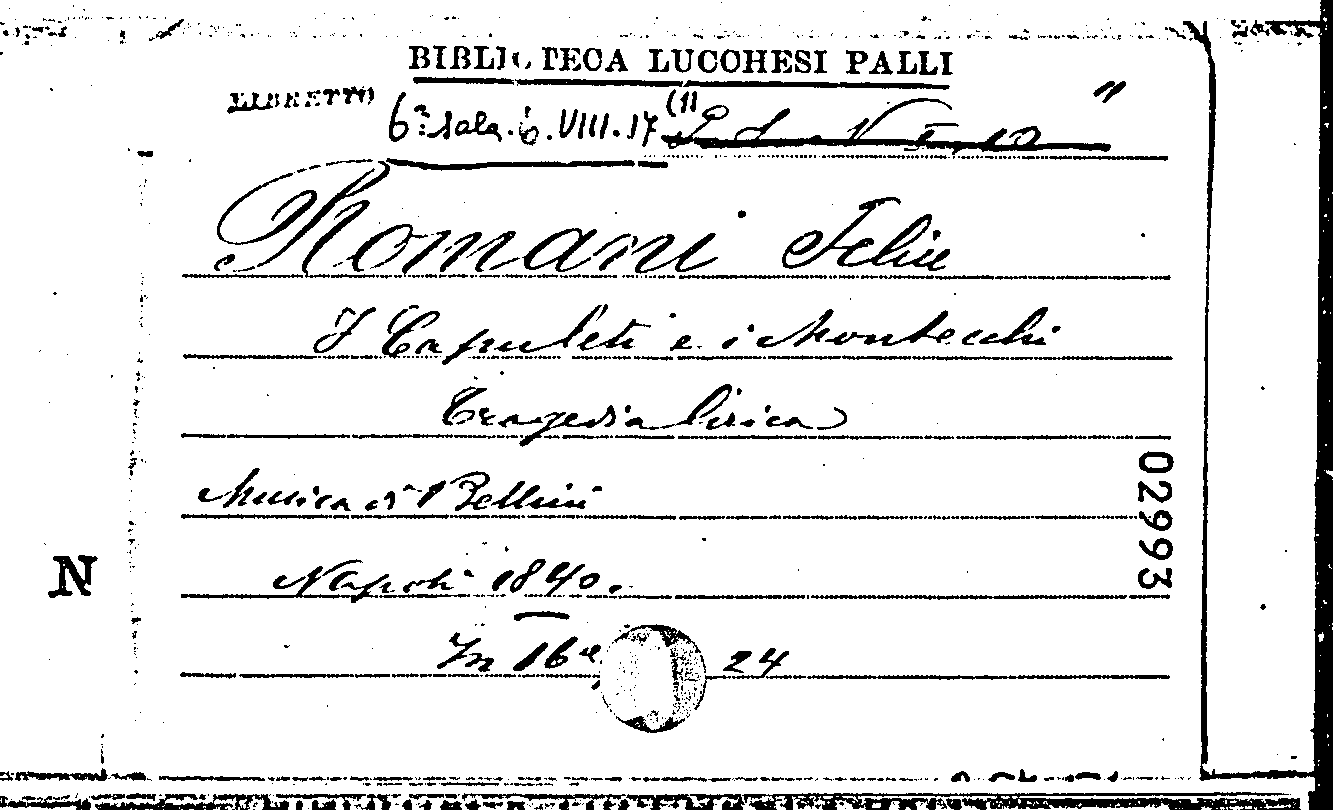 BIBLIOTECA LUCCHESI PALLI
LIBRETTO
6ª Sala. 6. VIII. 17 (11
Romani Felice
I Capuleti e i Montecchi
Tragedia lirica
Musica di Bellini
Napoli 1840.
In 16º 24
02993
N